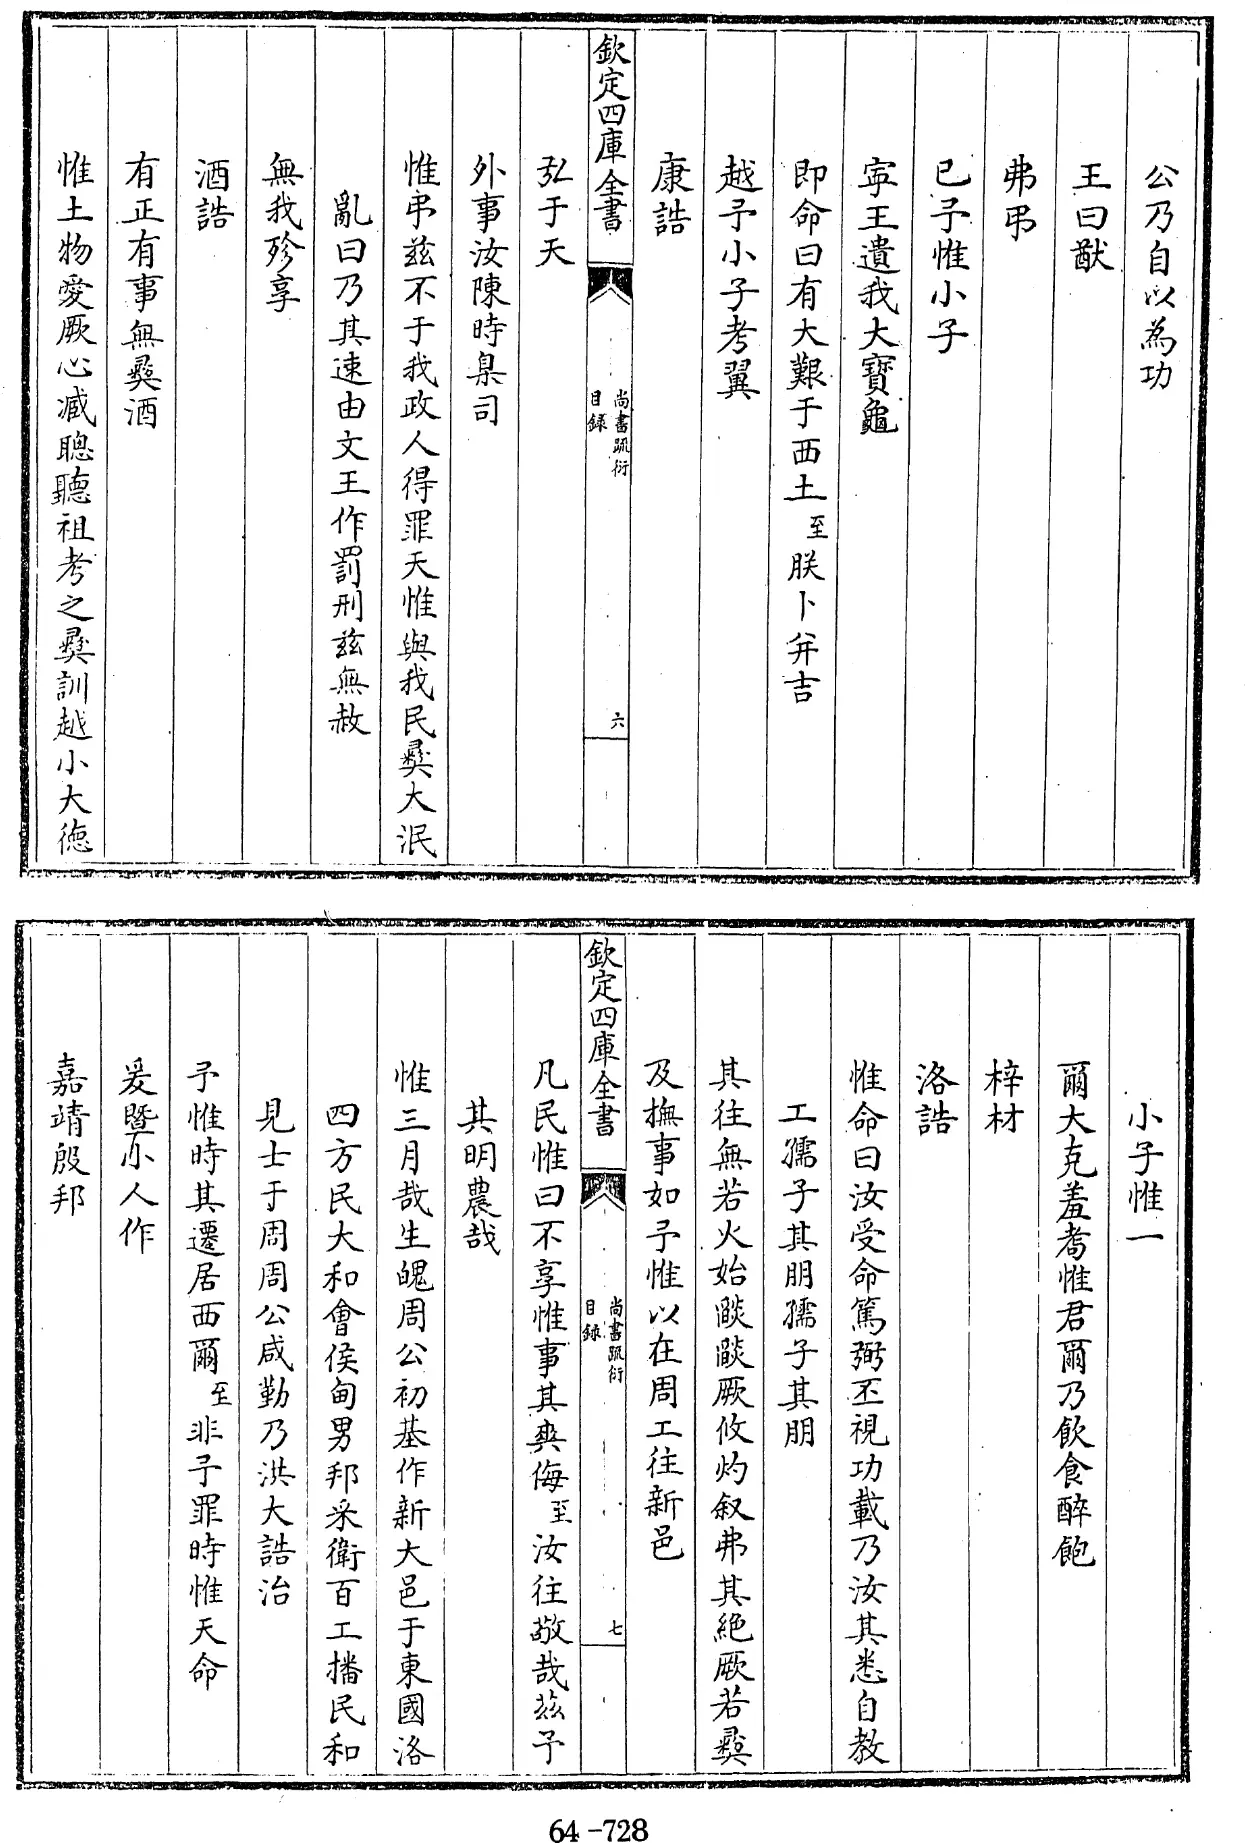 公乃自以為功
王曰猷
弗弔
已予惟小子
寧王遺我大寶龜
即命曰有大艱于西土至朕卜并吉
越予小子考翼
康誥
欽定四庫全書
尚書疏衍
目録
六
弘于天
外事汝陳時臬司
惟弔兹不于我政人得罪天惟與我民彛大泯
亂曰乃其速由文王作罰刑兹無赦
無我殄享
酒誥
有正有事無彛酒
惟土物愛厥心臧聰聽祖考之彛訓越小大徳
小子惟一
爾大克羞耇惟君爾乃飲食醉飽
梓材
洛誥
惟命曰汝受命篤弼丕視功載乃汝其悉自教
工孺子其朋孺子其朋
其往無若火始燄燄厥攸灼叙弗其絶厥若彛
及撫事如予惟以在周工往新邑
欽定四庫全書
尚書疏衍
目録
七
凡民惟曰不享惟事其爽侮至汝往敬哉兹予
其明農哉
惟三月哉生魄周公初基作新大邑于東國洛
四方民大和會侯甸男邦采衛百工播民和
見士于周周公咸勤乃洪大誥治
予惟時其遷居西爾至非予罪時惟天命
爰暨小人作
嘉靖殷邦
64-728